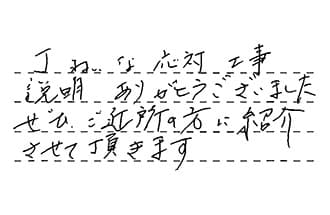 丁ねいな応対 工事
説明 ありがとうございました
ぜひ、ご近所の方に紹介
させて頂きます